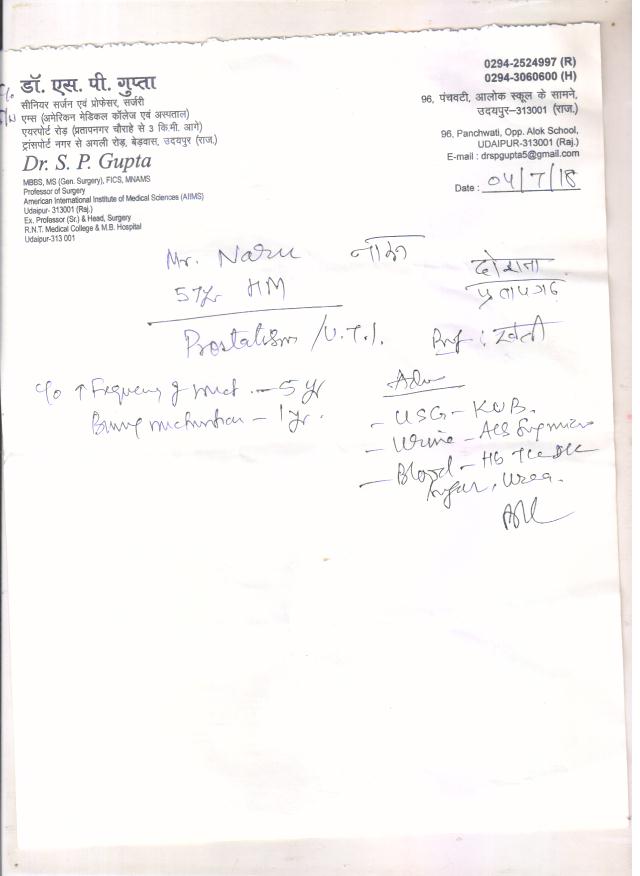 डॉ. एस. पी. गुप्ता
सीनियर सर्जन एवं प्रोफेसर, सर्जरी
एम्स (अमेरिकन मेडिकल कॉलेज एवं अस्पताल)
एयरपोर्ट रोड़ (प्रतापनगर चौराहे से 3 कि.मी. आगे)
ट्रांसपोर्ट नगर से अगली रोड़, बेड़वास, उदयपुर (राज.)
Dr. S. P. Gupta
MBBS, MS (Gen. Surgery), FICS, MNAMS
Professor of Surgery
American International Institute of Medical Sciences (AIIMS)
Udaipur- 313001 (Raj.)
Ex. Professor (Sr.) & Head, Surgery
R.N.T. Medical College & M.B. Hospital
Udaipur-313 001
0294-2524997 (R)
0294-3060600 (H)
96, पंचवटी, आलोक स्कूल के सामने,
उदयपुर-313001 (राज.)
96, Panchwati, Opp. Alok School,
UDAIPUR-313001 (Raj.)
E-mail : drspgupta5@gmail.com
Date : 04/7/18
Mr. Naru
57yr HM
प्रतापगढ़
Prostatism / U.T.I.
c/o ↑ Frequency of mict. - 5 yr
Burning micturition - 1 yr.
Adv
- USG - KUB.
- Urine - 
- Blood - Hb TLC DLC
Sugar, Urea.